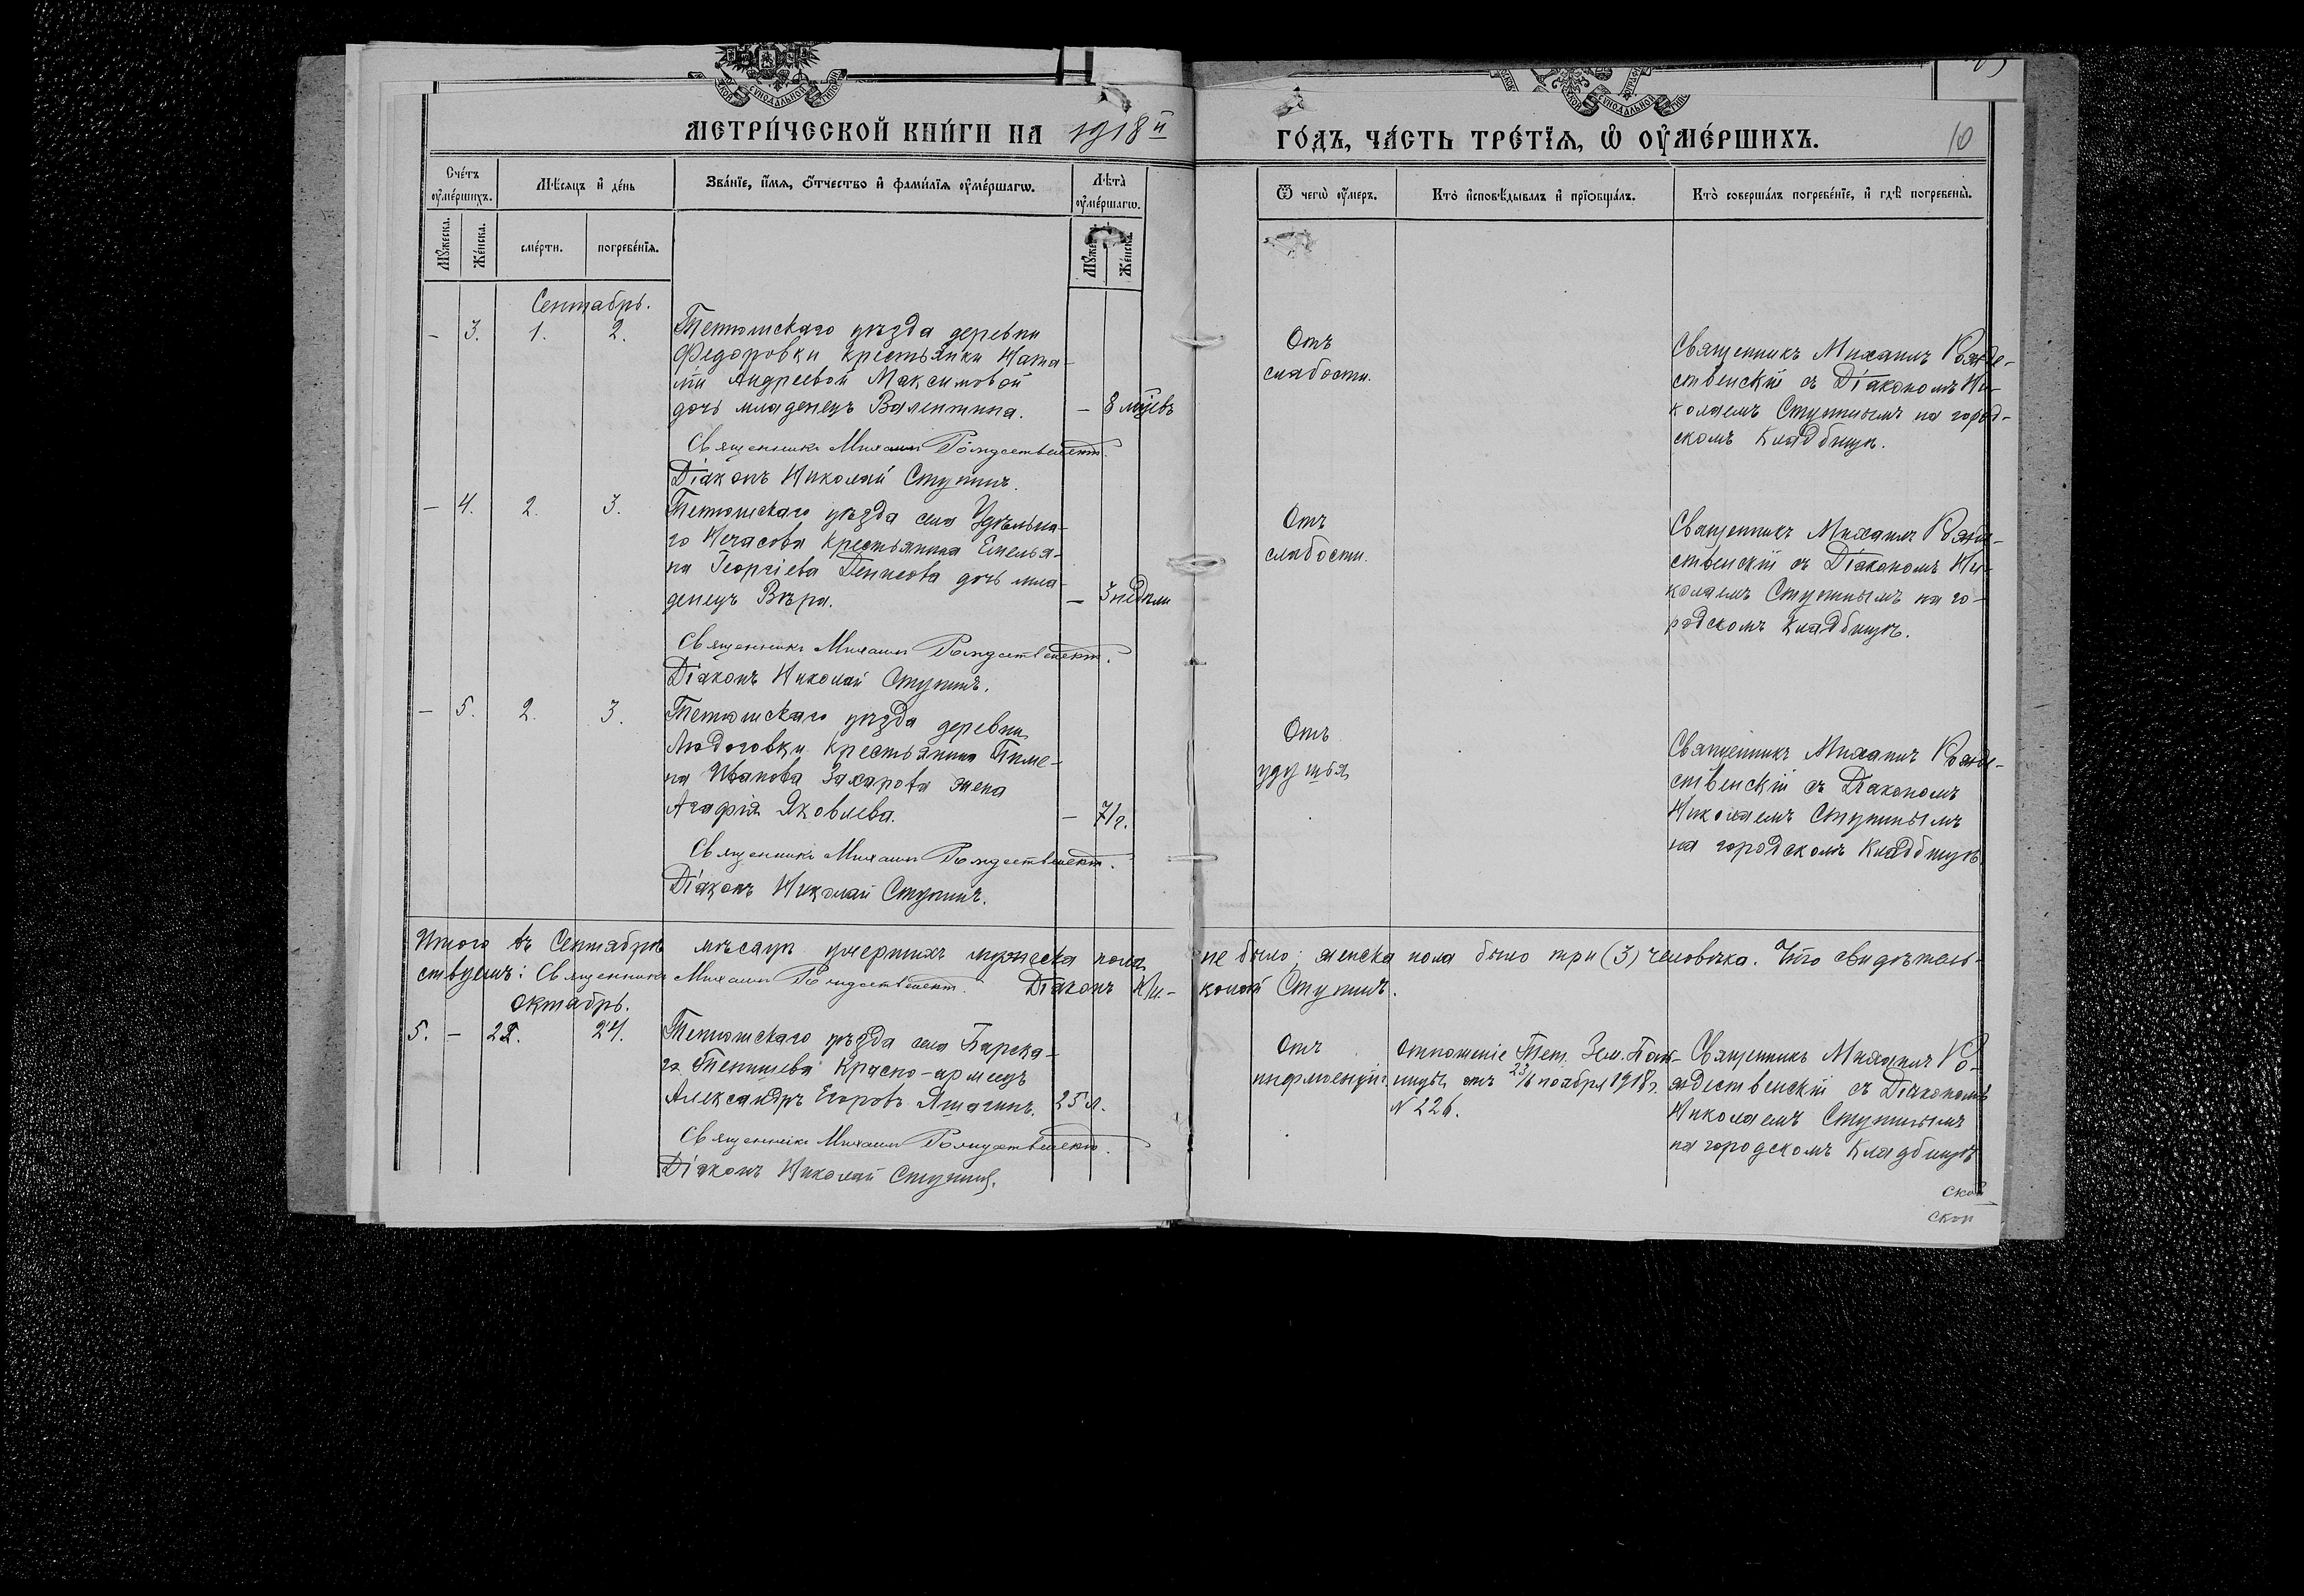 МЕТРИ́ЧЕСКОЙ КНИ́ГИ НА 1918 й ГО́ДЪ, ЧА́СТЬ ТРЕ́ТІѦ, Ѡ ОУ҆МЕ́РШИХЪ. 10
Сче́тъ оу҆ме́ршихъ.
Мѣ́сяцъ и҆ де́нь
Зва́нїе, и҆́мѧ, ѻ҆́тчество и҆ фами́лїѧ оу҆ме́ршагѡ.
Лѣта̀ оу҆ме́ршагѡ.
Ѿ чегѡ̀ оу҆́меръ.
Кто̀ и҆сповѣ́дывалъ и҆ прїѻбща́лъ.
Кто̀ соверша́лъ погребе́нїе, и҆ гдѣ̀ погребены̀.
Мꙋ́жеска.
Же́нска.
сме́рти.
погребе́нїѧ.
Мꙋ́жес
Же́нска.
Сентябрь.
– 3. 1. 2.
Тетюшскаго уѣзда деревни
Федоровки крестьянки Ната-
ліи Андреевой Максимовой
дочь младенецъ Валентина. – 8 мцевъ
Священникъ Михаилъ Рождественскій.
Діаконъ Николай Ступинъ.
Отъ
слабости.
Священникъ Михаилъ Рожде-
ственскій съ Діакономъ Ни-
колаемъ Ступинымъ на город-
скомъ кладбищѣ.
– 4. 2. 3.
Тетюшскаго уѣзда села Удѣльна-
го Нечасова крестьянина Емелья-
на Георгіева Денисова дочь мла-
денецъ Вѣра. – 3 недѣли
Священникъ Михаилъ Рождественскій.
Діаконъ Николай Ступинъ.
Отъ
слабости.
Священникъ Михаилъ Рожде-
ственскій съ Діакономъ Ни-
колаемъ Ступинымъ на го-
родскомъ кладбищѣ.
– 5. 2. 3.
Тетюшскаго уѣзда деревни
Людоговки крестьянина Пиме-
на Иванова Захарова жена
Агафія Яковлева. – 71 г.
Священникъ Михаилъ Рождественскій.
Діаконъ Николай Ступинъ.
Отъ
удушья
Священникъ Михаилъ Рожде-
ственскій съ Діакономъ
Николаемъ Ступинымъ
на городскомъ кладбищѣ
Итого въ Сентябрѣ мѣсяцѣ умершихъ мужеска пола не было; женска пола было три (3) человѣка. Что свидѣтель-
ствуемъ: Священникъ Михаилъ Рождественскій. Діаконъ Ни- колай Ступинъ.
Октябрь.
5. – 22. 24.
Тетюшскаго уѣзда села Барска-
го Тенишева Красно-армеецъ
Александръ Егоровъ Яшагинъ. 25 л.
Священникъ Михаилъ Рождественскій.
Діаконъ Николай Ступинъ.
Отъ
инфлоенціи.
Отношеніе Тет. Зем. Боль-
ницы отъ 23/6 ноября 1918 г.
№ 226.
Священникъ Михаилъ Ро-
ждественскій съ Діакономъ
Николаемъ Ступинымъ
на городскомъ кладбищѣ